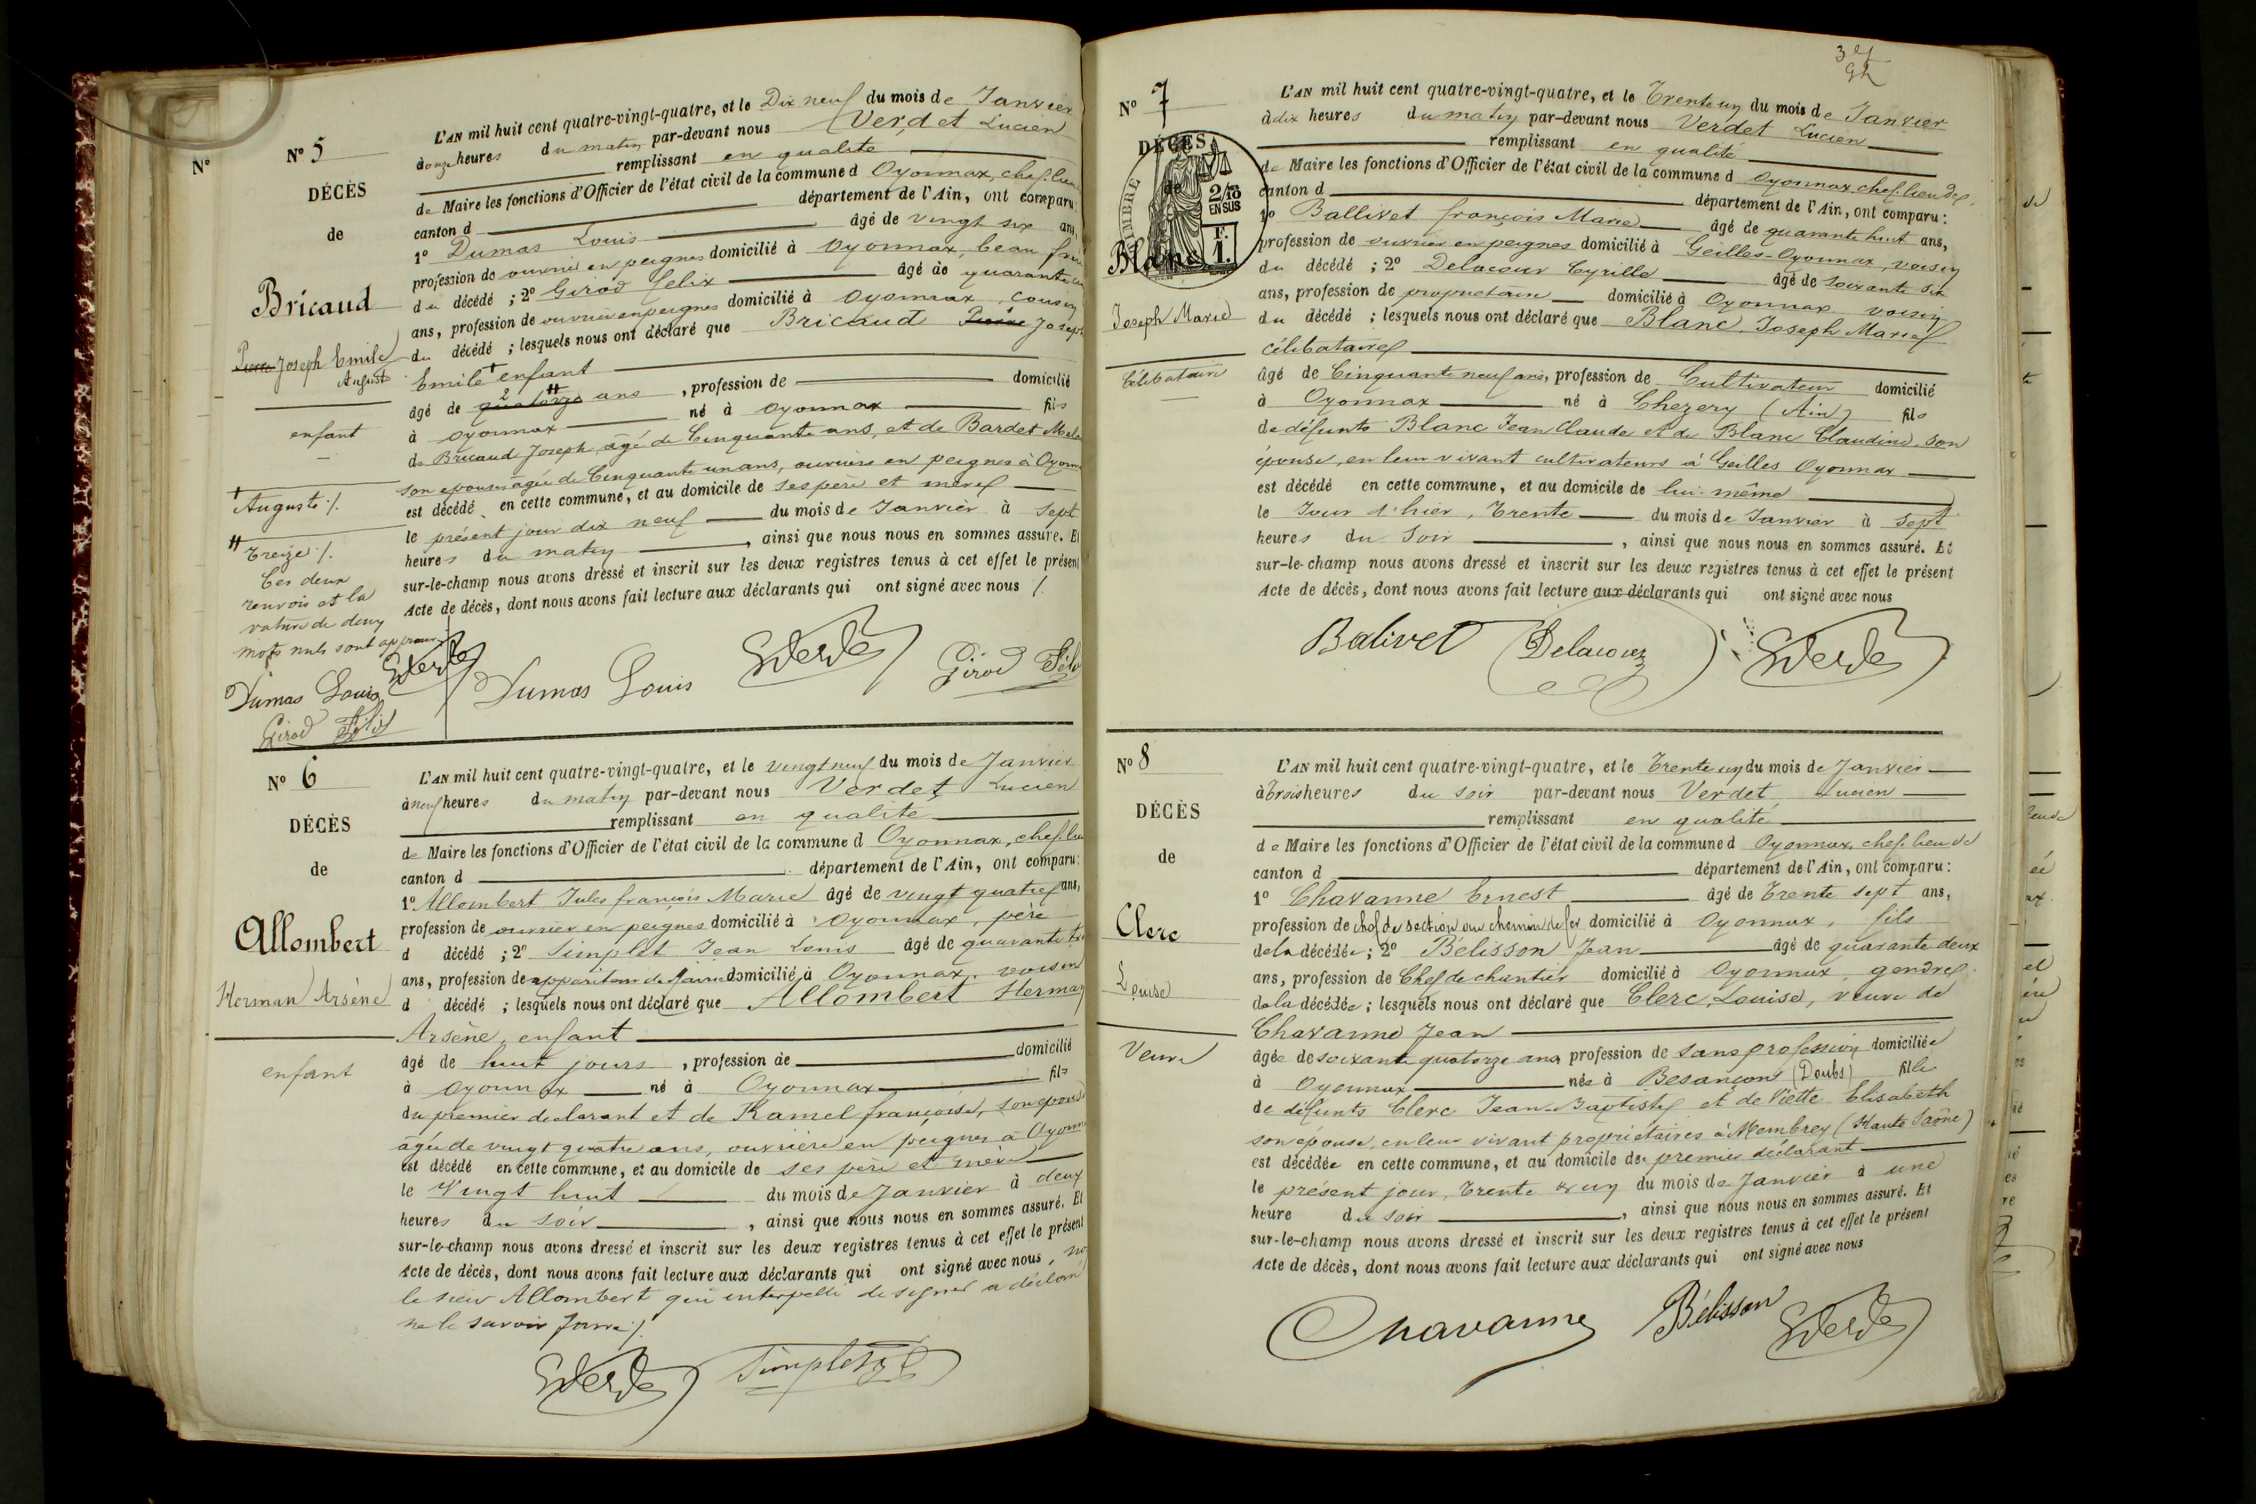 N°
N° 5
DÉCÈS
de
Bricaud
Pierre Joseph Emile
Auguste
enfant
+ Auguste ./.
# Treize ./.
Ces deux
renvois et la
rature de deux
mots nuls sont approuvés
Dumas Louis
Girod Félix
L'AN mil huit cent quatre-vingt-quatre, et le Dix neuf du mois de Janvier
à onze heures du matin par-devant nous Verdet Lucien
remplissant en qualité
de Maire les fonctions d'Officier de l'état civil de la commune d Oyonnax, chef-lieu
canton d département de l'Ain, ont comparu:
1° Dumas Louis âgé de vingt six ans,
profession de ouvrier en peignes domicilié à Oyonnax, beau frère
du décédé ; 2° Girod Félix âgé de quarante
ans, profession de ouvrier en peignes domicilié à Oyonnax, cousin
du décédé ; lesquels nous ont déclaré que Bricaud Pierre Joseph
Emile + enfant
âgé de quatorze # ans , profession de domicilié
à Oyonnax né à Oyonnax fils
de Bricaud Joseph, âgé de Cinquante ans, et de Bardet
son épouse âgée de Cinquante un ans, ouvriers en peignes à Oyonnax
est décédé en cette commune, et au domicile de ses père et mère
le présent jour dix neuf du mois de Janvier à sept
heures du matin , ainsi que nous nous en sommes assuré. Et
sur-le-champ nous avons dressé et inscrit sur les deux registres tenus à cet effet le présent
Acte de décès, dont nous avons fait lecture aux déclarants qui ont signé avec nous ./.
Dumas Louis Verdet Girod Félix
N° 6
DÉCÈS
de
Allombert
Herman Arsène
enfant
L'AN mil huit cent quatre-vingt-quatre, et le vingt neuf du mois de Janvier
à neuf heures du matin par-devant nous Verdet Lucien
remplissant en qualité
de Maire les fonctions d'Officier de l'état civil de la commune d Oyonnax, chef-lieu
canton d département de l'Ain, ont comparu:
1° Allombert Jules françois Marie âgé de vingt quatre ans,
profession de ouvrier en peignes domicilié à Oyonnax, père
d décédé ; 2° Simplet Jean Louis âgé de quarante
ans, profession de appariteur de Mairie domicilié à Oyonnax, voisin
d décédé ; lesquels nous ont déclaré que Allombert Herman
Arsène, enfant
âgé de huit jours , profession de domicilié
à Oyonnax né à Oyonnax fils
du premier déclarant et de Kamel françoise, son épouse
âgée de vingt quatre ans, ouvrière en peignes à Oyonnax
est décédé en cette commune, et au domicile de ses père et mère
le Vingt huit du mois de Janvier à deux
heures du soir , ainsi que nous nous en sommes assuré. Et
sur-le-champ nous avons dressé et inscrit sur les deux registres tenus à cet effet le présent
Acte de décès, dont nous avons fait lecture aux déclarants qui ont signé avec nous, non
le sieur Allombert qui interpellé de signer a déclaré
ne le savoir faire ./.
Verdet Simplet
3
N° 7
DÉCÈS
de
TIMBRE
2/10
EN SUS
F.
1.
Blanc
Joseph Marie
Célibataire
L'AN mil huit cent quatre-vingt-quatre, et le Trente un du mois de Janvier
à dix heures du matin par-devant nous Verdet Lucien
remplissant en qualité
de Maire les fonctions d'Officier de l'état civil de la commune d Oyonnax chef-lieu de
canton d département de l'Ain, ont comparu :
1° Ballivet françois Marie âgé de quarante huit ans,
profession de ouvrier en peignes domicilié à Geilles-Oyonnax, voisin
du décédé ; 2° Delacour Cyrille âgé de soixante six
ans, profession de propriétaire domicilié à Oyonnax voisin
du décédé ; lesquels nous ont déclaré que Blanc Joseph Marie
célibataire
âgé de Cinquante neuf ans, profession de Cultivateur domicilié
à Oyonnax né à Chezery (Ain) fils
de défunts Blanc Jean Claude et de Blanc Claudine, son
épouse, en leur vivant cultivateurs à Geilles Oyonnax
est décédé en cette commune, et au domicile de lui-même
le Jour d'hier, Trente du mois de Janvier à sept
heures du Soir , ainsi que nous nous en sommes assuré. Et
sur-le-champ nous avons dressé et inscrit sur les deux registres tenus à cet effet le présent
Acte de décès, dont nous avons fait lecture aux déclarants qui ont signé avec nous
Balivet Delacour Verdet
N° 8
DÉCÈS
de
Clerc
Louise
Veuve
L'AN mil huit cent quatre-vingt-quatre, et le Trente un du mois de Janvier
à Trois heures du soir par-devant nous Verdet Lucien
remplissant en qualité
de Maire les fonctions d'Officier de l'état civil de la commune d Oyonnax, chef-lieu de
canton d département de l'Ain, ont comparu :
1° Chavanne Ernest âgé de Trente sept ans,
profession de chef de section au chemin de fer domicilié à Oyonnax, fils
de la décédée ; 2° Bélisson Jean âgé de quarante deux
ans, profession de Chef de chantier domicilié à Oyonnax, gendre
de la décédée ; lesquels nous ont déclaré que Clerc, Louise, veuve de
Chavanne Jean
âgée de soixante quatorze ans profession de sans profession domiciliée
à Oyonnax née à Besançon (Doubs) fille
de défunts Clerc Jean-Baptiste et de Viette Elisabeth
son épouse, en leur vivant propriétaires à Membrey (Haute Saône)
est décédée en cette commune, et au domicile de premier déclarant
le présent jour, Trente & un du mois de Janvier à une
heure du soir , ainsi que nous nous en sommes assuré. Et
sur-le-champ nous avons dressé et inscrit sur les deux registres tenus à cet effet le présent
Acte de décès, dont nous avons fait lecture aux déclarants qui ont signé avec nous
Chavanne Bélisson Verdet